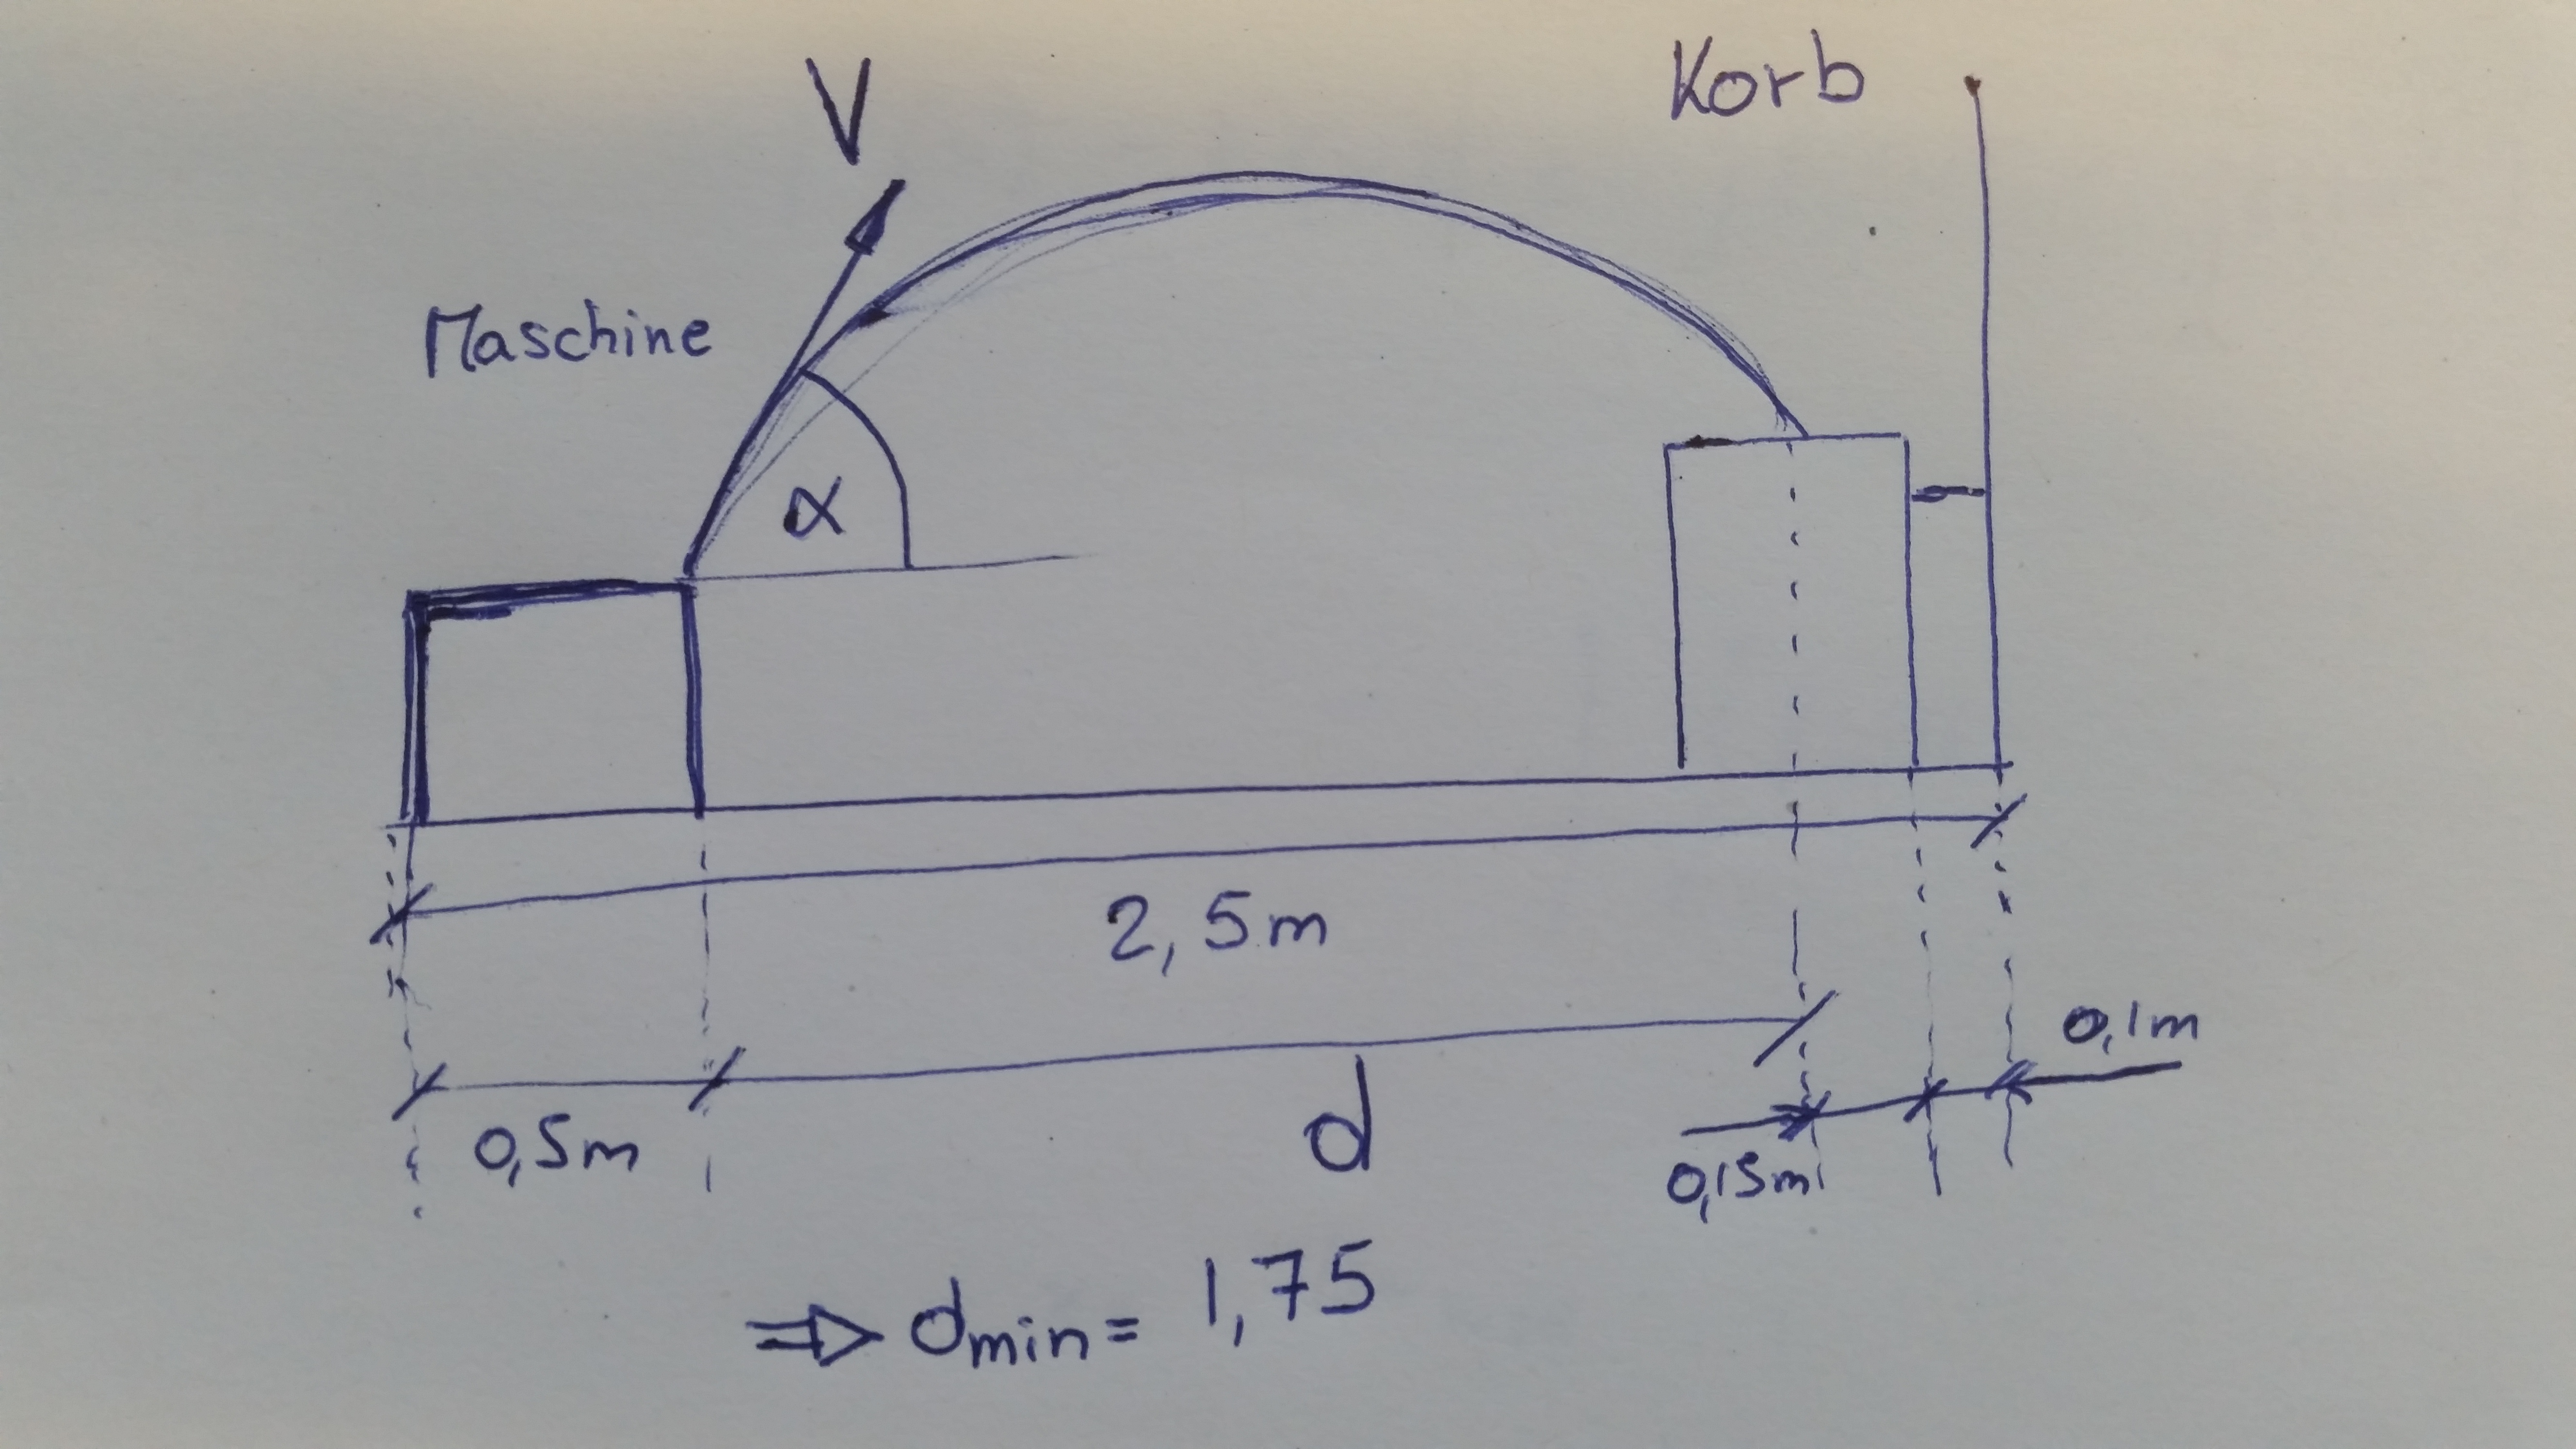 V
Korb
Maschine
α
2,5m
0,1m
d
0,5m
0,15m
⇒ dmin= 1,75